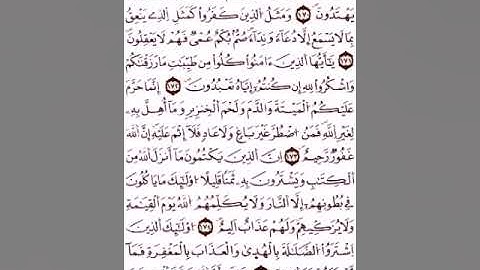 يَهْتَدُونَ ١٧٠ وَمَثَلُ الذِينَ كَفَرُواْ كَمَثَلِ الذِے يَنْعِقُ
بِمَا لَا يَسْمَعُ إِلَّا دُعَآءً وَنِدَآءً صُمٌّ بُكْمٌ عُمْيٌ فَهُمْ لَا يَعْقِلُونَ
١٧١ يَٰٓأَيُّهَا الذِينَ ءَامَنُواْ كُلُواْ مِن طَيِّبَٰتِ مَا رَزَقْنَٰكُمْ
وَاشْكُرُواْ لِلهِ إِن كُنتُمُۥٓ إِيَّاهُ تَعْبُدُونَ ١٧٢ إِنَّمَا حَرَّمَ
عَلَيْكُمُ الْمَيْتَةَ وَالدَّمَ وَلَحْمَ الْخِنزِيرِ وَمَآ أُهِلَّ بِهِۦ
لِغَيْرِ اِللَّهِ فَمَنُ اُضْطُرَّ غَيْرَ بَاغٍ وَلَا عَادٍ فَلَآ إِثْمَ عَلَيْهِ إِنَّ اَللَّهَ
غَفُورٌ رَّحِيمٌ ١٧٣ إِنَّ اَلذِينَ يَكْتُمُونَ مَآ أَنزَلَ اَللَّهُ مِنَ
اَلْكِتَٰبِ وَيَشْتَرُونَ بِهِۦ ثَمَنًا قَلِيلًا أُوْلَٰٓئِكَ مَا يَأْكُلُونَ
فِے بُطُونِهِمُۥٓ إِلَّا اَلنَّارَ وَلَا يُكَلِّمُهُمُ اُللَّهُ يَوْمَ اَلْقِيَٰمَةِ
وَلَا يُزَكِّيهِمْ وَلَهُمْ عَذَابٌ أَلِيمٌ ١٧٤ أُوْلَٰٓئِكَ اَلذِينَ
اَشْتَرَوُاْ اُلضَّلَٰلَةَ بِالْهُدَىٰ وَالْعَذَابَ بِالْمَغْفِرَةِ فَمَآ